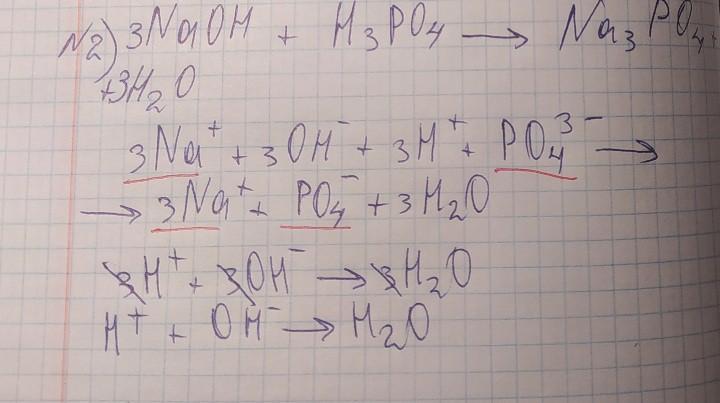 N2) 3NaOH + H₃PO₄ → Na₃PO₄ +
+3H₂O
3Na⁺ + 3OH⁻ + 3H⁺ + PO₄³⁻ →
→ 3Na⁺ + PO₄⁻ + 3H₂O
3H⁺ + 3OH⁻ → 3H₂O
H⁺ + OH⁻ → H₂O